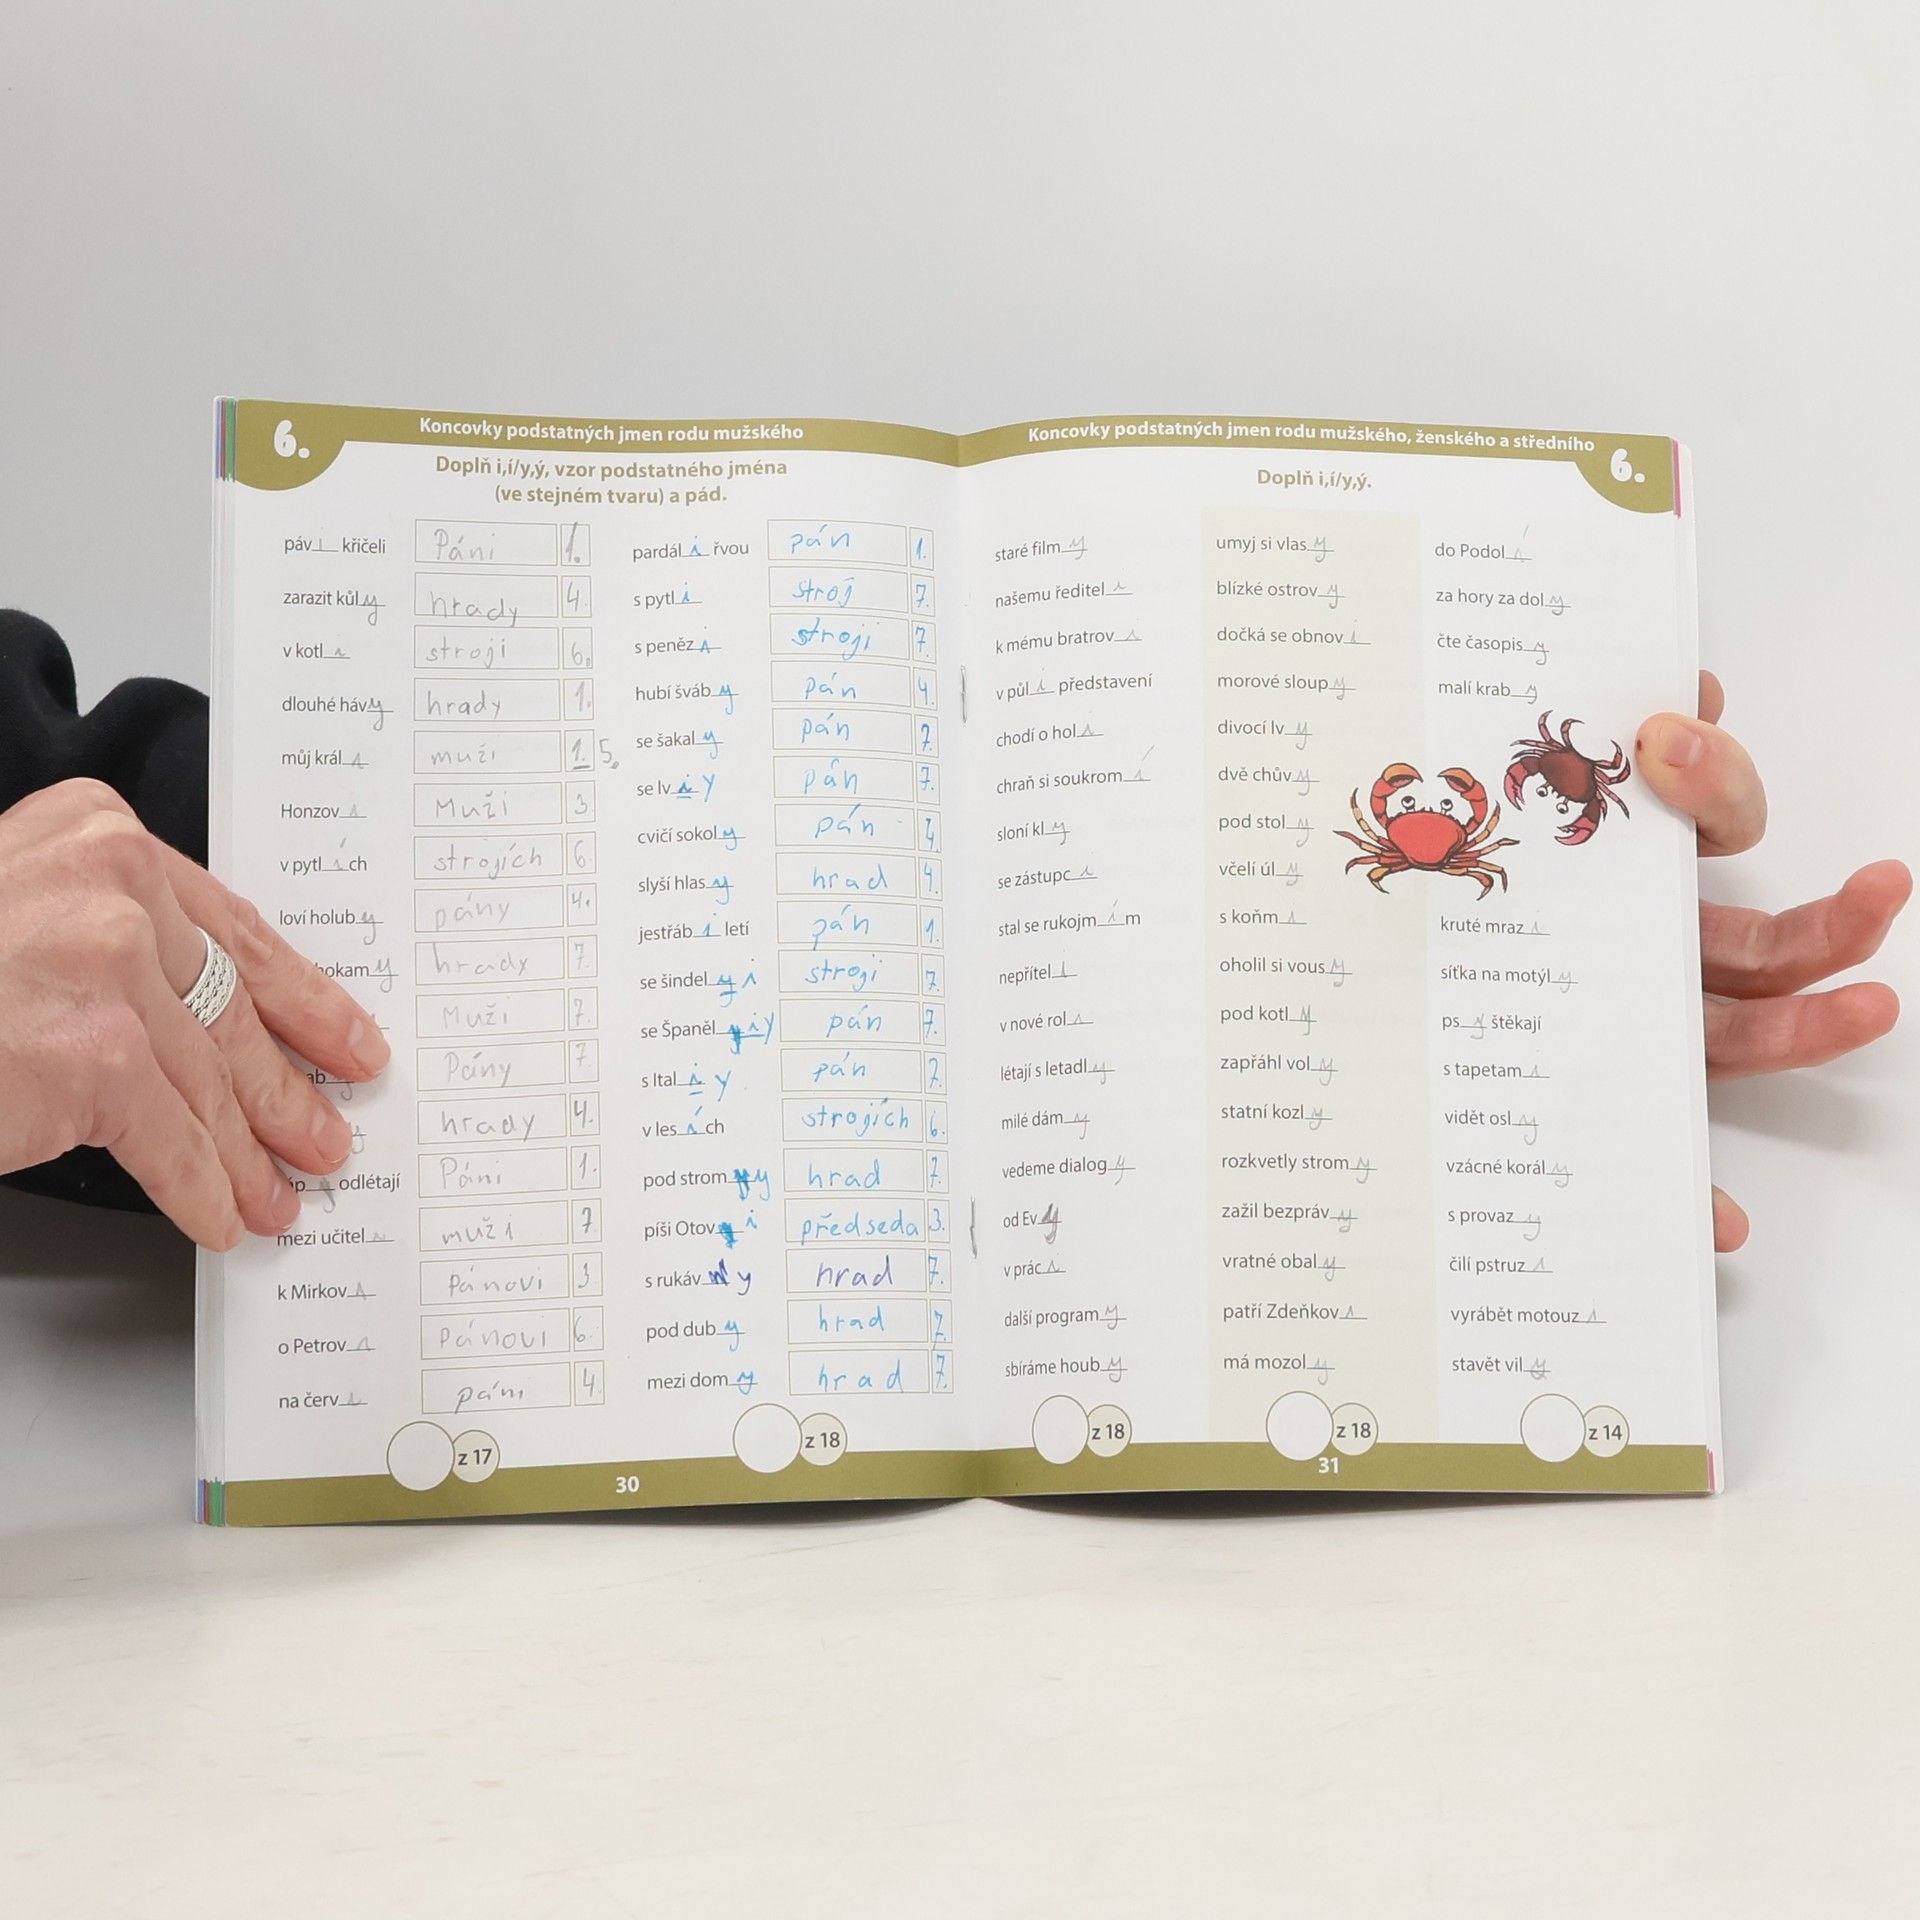 6.
Koncovky podstatných jmen rodu mužského
Doplň i,í/y,ý, vzor podstatného jména
(ve stejném tvaru) a pád.
pávi křičeli Páni 1.
zarazit kůly hrady 4.
v kotli stroji 6.
dlouhé hávy hrady 1.
můj králi muži 1. 5.
Honzovi Muži 3
v pytlích strojích 6.
loví holuby pány 4.
okamy hrady 7.
Muži 7.
ab Pány 7.
y hrady 4.
p y odlétají Páni 1.
mezi učiteli muži 7
k Mirkovi pánovi 3
o Petrovi Pánovi 6.
na červi páni 4.
z 17
pardáli řvou pán 1.
s pytli stroj 7.
s penězi stroji 7.
hubí šváby pán 4.
se šakaly pán 7.
se lvi y pán 7.
cvičí sokoly pán 4.
slyší hlasy hrad 4.
jestřábi letí pán 1.
se šindely i stroji 7.
se Španěl y pán 7.
s Itali y pán 7.
v lesích strojích 6.
pod strom y hrad 7.
píši Otov i předseda 3.
s rukáv y hrad 7.
pod duby hrad 7.
mezi domy hrad 7.
z 18
30
Koncovky podstatných jmen rodu mužského, ženského a středního
6.
Doplň i,í/y,ý.
staré filmy
našemu řediteli
k mému bratrovi
v půli představení
chodí o holi
chraň si soukromí
sloní kly
se zástupci
stal se rukojmím
nepříteli
v nové roli
létají s letadly
milé dámy
vedeme dialogy
od Evy
v práci
další programy
sbíráme houby
z 18
umyj si vlasy
blízké ostrovy
dočká se obnovi
morové sloupy
divocí lvy
dvě chůvy
pod stoly
včelí úly
s koňmi
oholil si vousy
pod kotly
zapřáhl voly
statní kozly
rozkvetly stromy
zažil bezprávy
vratné obaly
patří Zdeňkovi
má mozoly
z 18
do Podolí
za hory za doly
čte časopisy
malí kraby
kruté mrazi
síťka na motýly
psy štěkají
s tapetami
vidět osly
vzácné korály
s provazy
čilí pstruzi
vyrábět motouzi
stavět vily
z 14
31